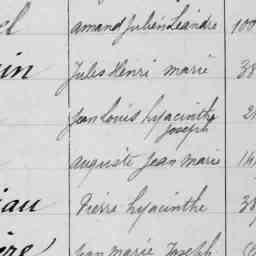 el amand Julien Leandre 100
in Jules Henri marie 38
Jean Louis hyacinthe 2
Joseph
auguste Jean Marie 14
iau Pierre hyacinthe 38
ère Jean Marie Joseph